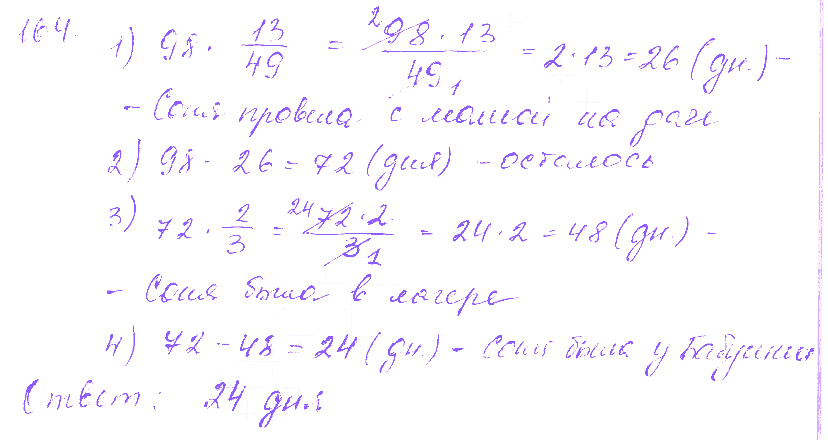 164. 1) 98 · 13/49 = 98 · 13/49 = 2 · 13 = 26 (дн.) –
2 1
– Соня провела с мамой на даче
2) 98 - 26 = 72 (дня) - осталось
3) 72 · 2/3 = 72 · 2/3 = 24 · 2 = 48 (дн.) –
24 1
– Соня была в лагере
4) 72 – 48 = 24 (дн.) – Соня была у бабушки
Ответ: 24 дня